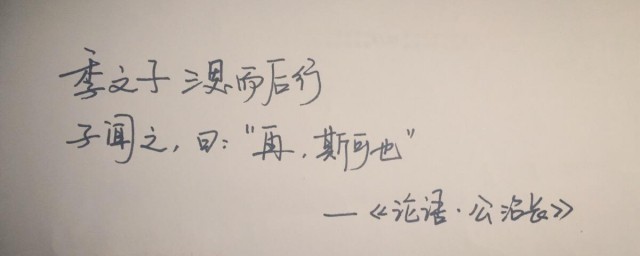 季文子三思而后行
子闻之，曰："再，斯可也"
—《论语·公冶长》